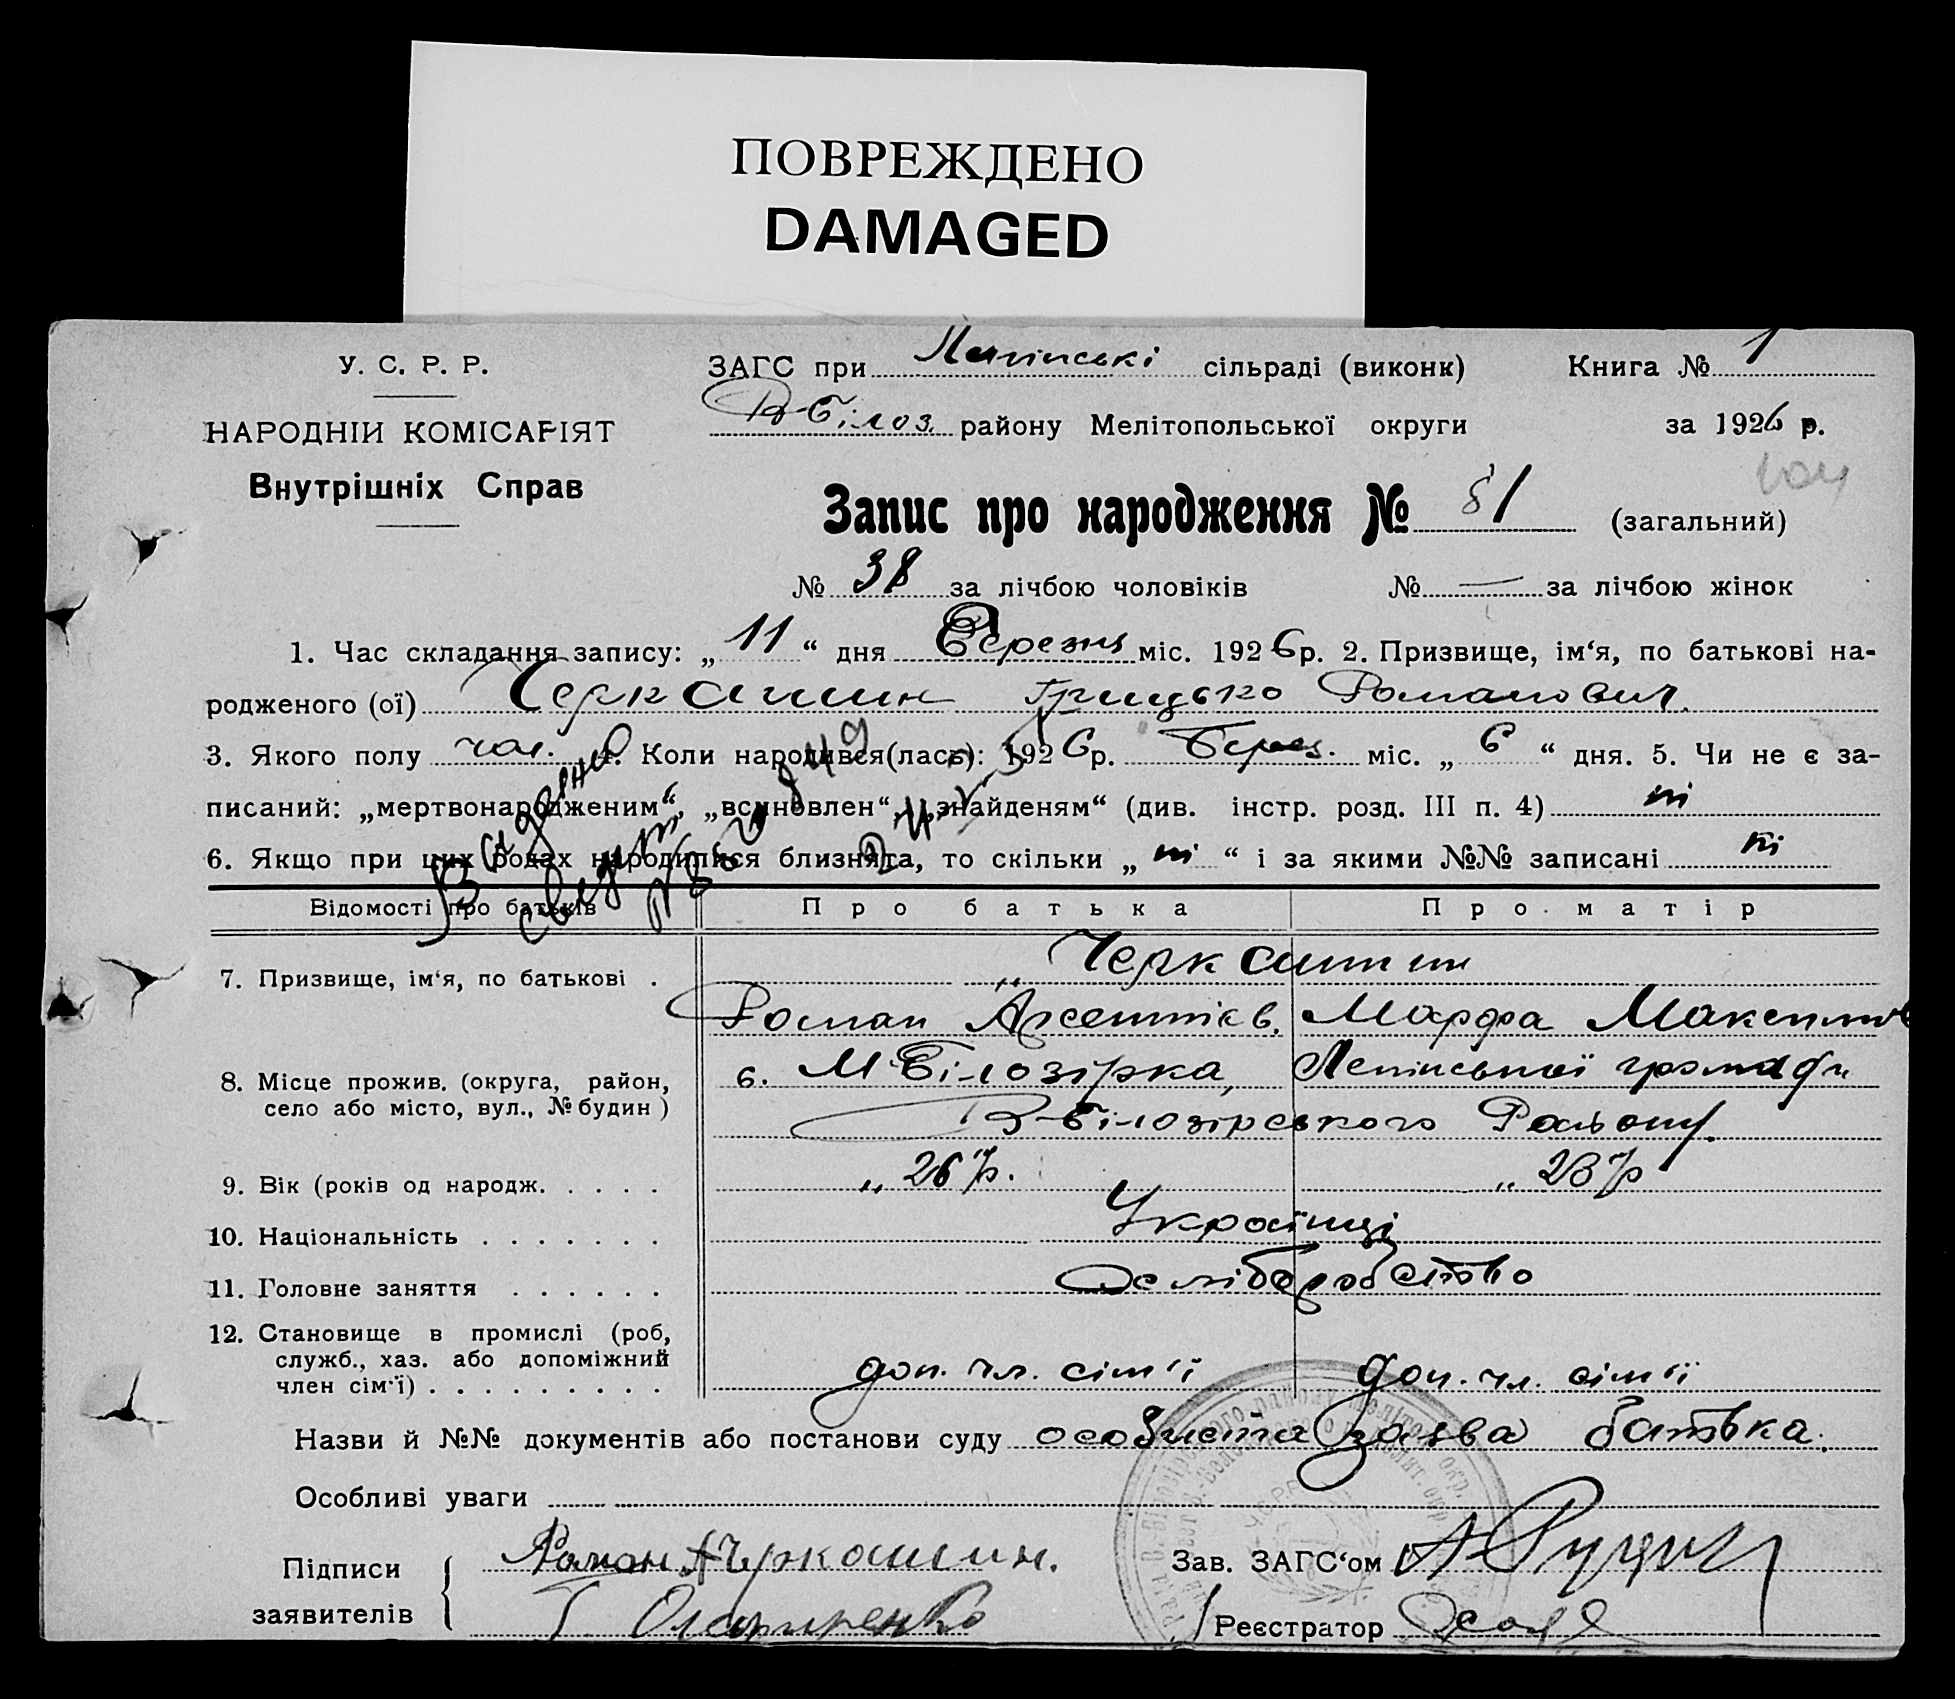 ПОВРЕЖДЕНО
DAMAGED
У. С. Р. Р.
НАРОДНІЙ КОМІСАРІЯТ
Внутрішніх Справ
ЗАГС при Ленінські сільраді (виконк) Книга № 1
В-Білоз. району Мелітопольської округи за 1926 р.
Запис про народження № 81 (загальний)
№ 38 за лічбою чоловіків № — за лічбою жінок
1. Час складання запису: „ 11 “ дня Березня міс. 1926 р. 2. Призвище, ім‘я, по батькові на-
родженого (ої) Черкашин Грицько Романович.
3. Якого полу чол. 4. Коли народився(лась): 1926 р. Берез. міс. „ 6 “ дня. 5. Чи не є за-
писаний: „мертвонародженим“, „всиновлен“, „знайденям“ (див. інстр. розд. III п. 4) ні
6. Якщо при цих родах народилися близнята, то скільки „ ні “ і за якими №№ записані ні
Выдано свидет.
Відомості про батьків Про батька Про матір
7. Призвище, ім‘я, по батькові . „ Черкашини
Роман Арсентієв. Марфа Максимов
8. Місце прожив. (округа, район, село або місто, вул., № будин ) с. М-Білозірка, Ленінської громади
В-Білозірського Району.
9. Вік (років од народж. . . . . „ 26 р. „ 23 р
10. Національність . . . . . . . Українці
11. Головне заняття . . . . . . Хліборобство
12. Становище в промислі (роб, служб., хаз. або допоміжний член сім‘ї) . . . . . . . . . доп. чл. сім‘ї доп. чл. сім‘ї
Назви й №№ документів або постанови суду особиста заява батька.
Особливі уваги
Підписи заявителів Роман А Черкашин.
Г. Олефиренко
Зав. ЗАГС‘ом
Реєстратор